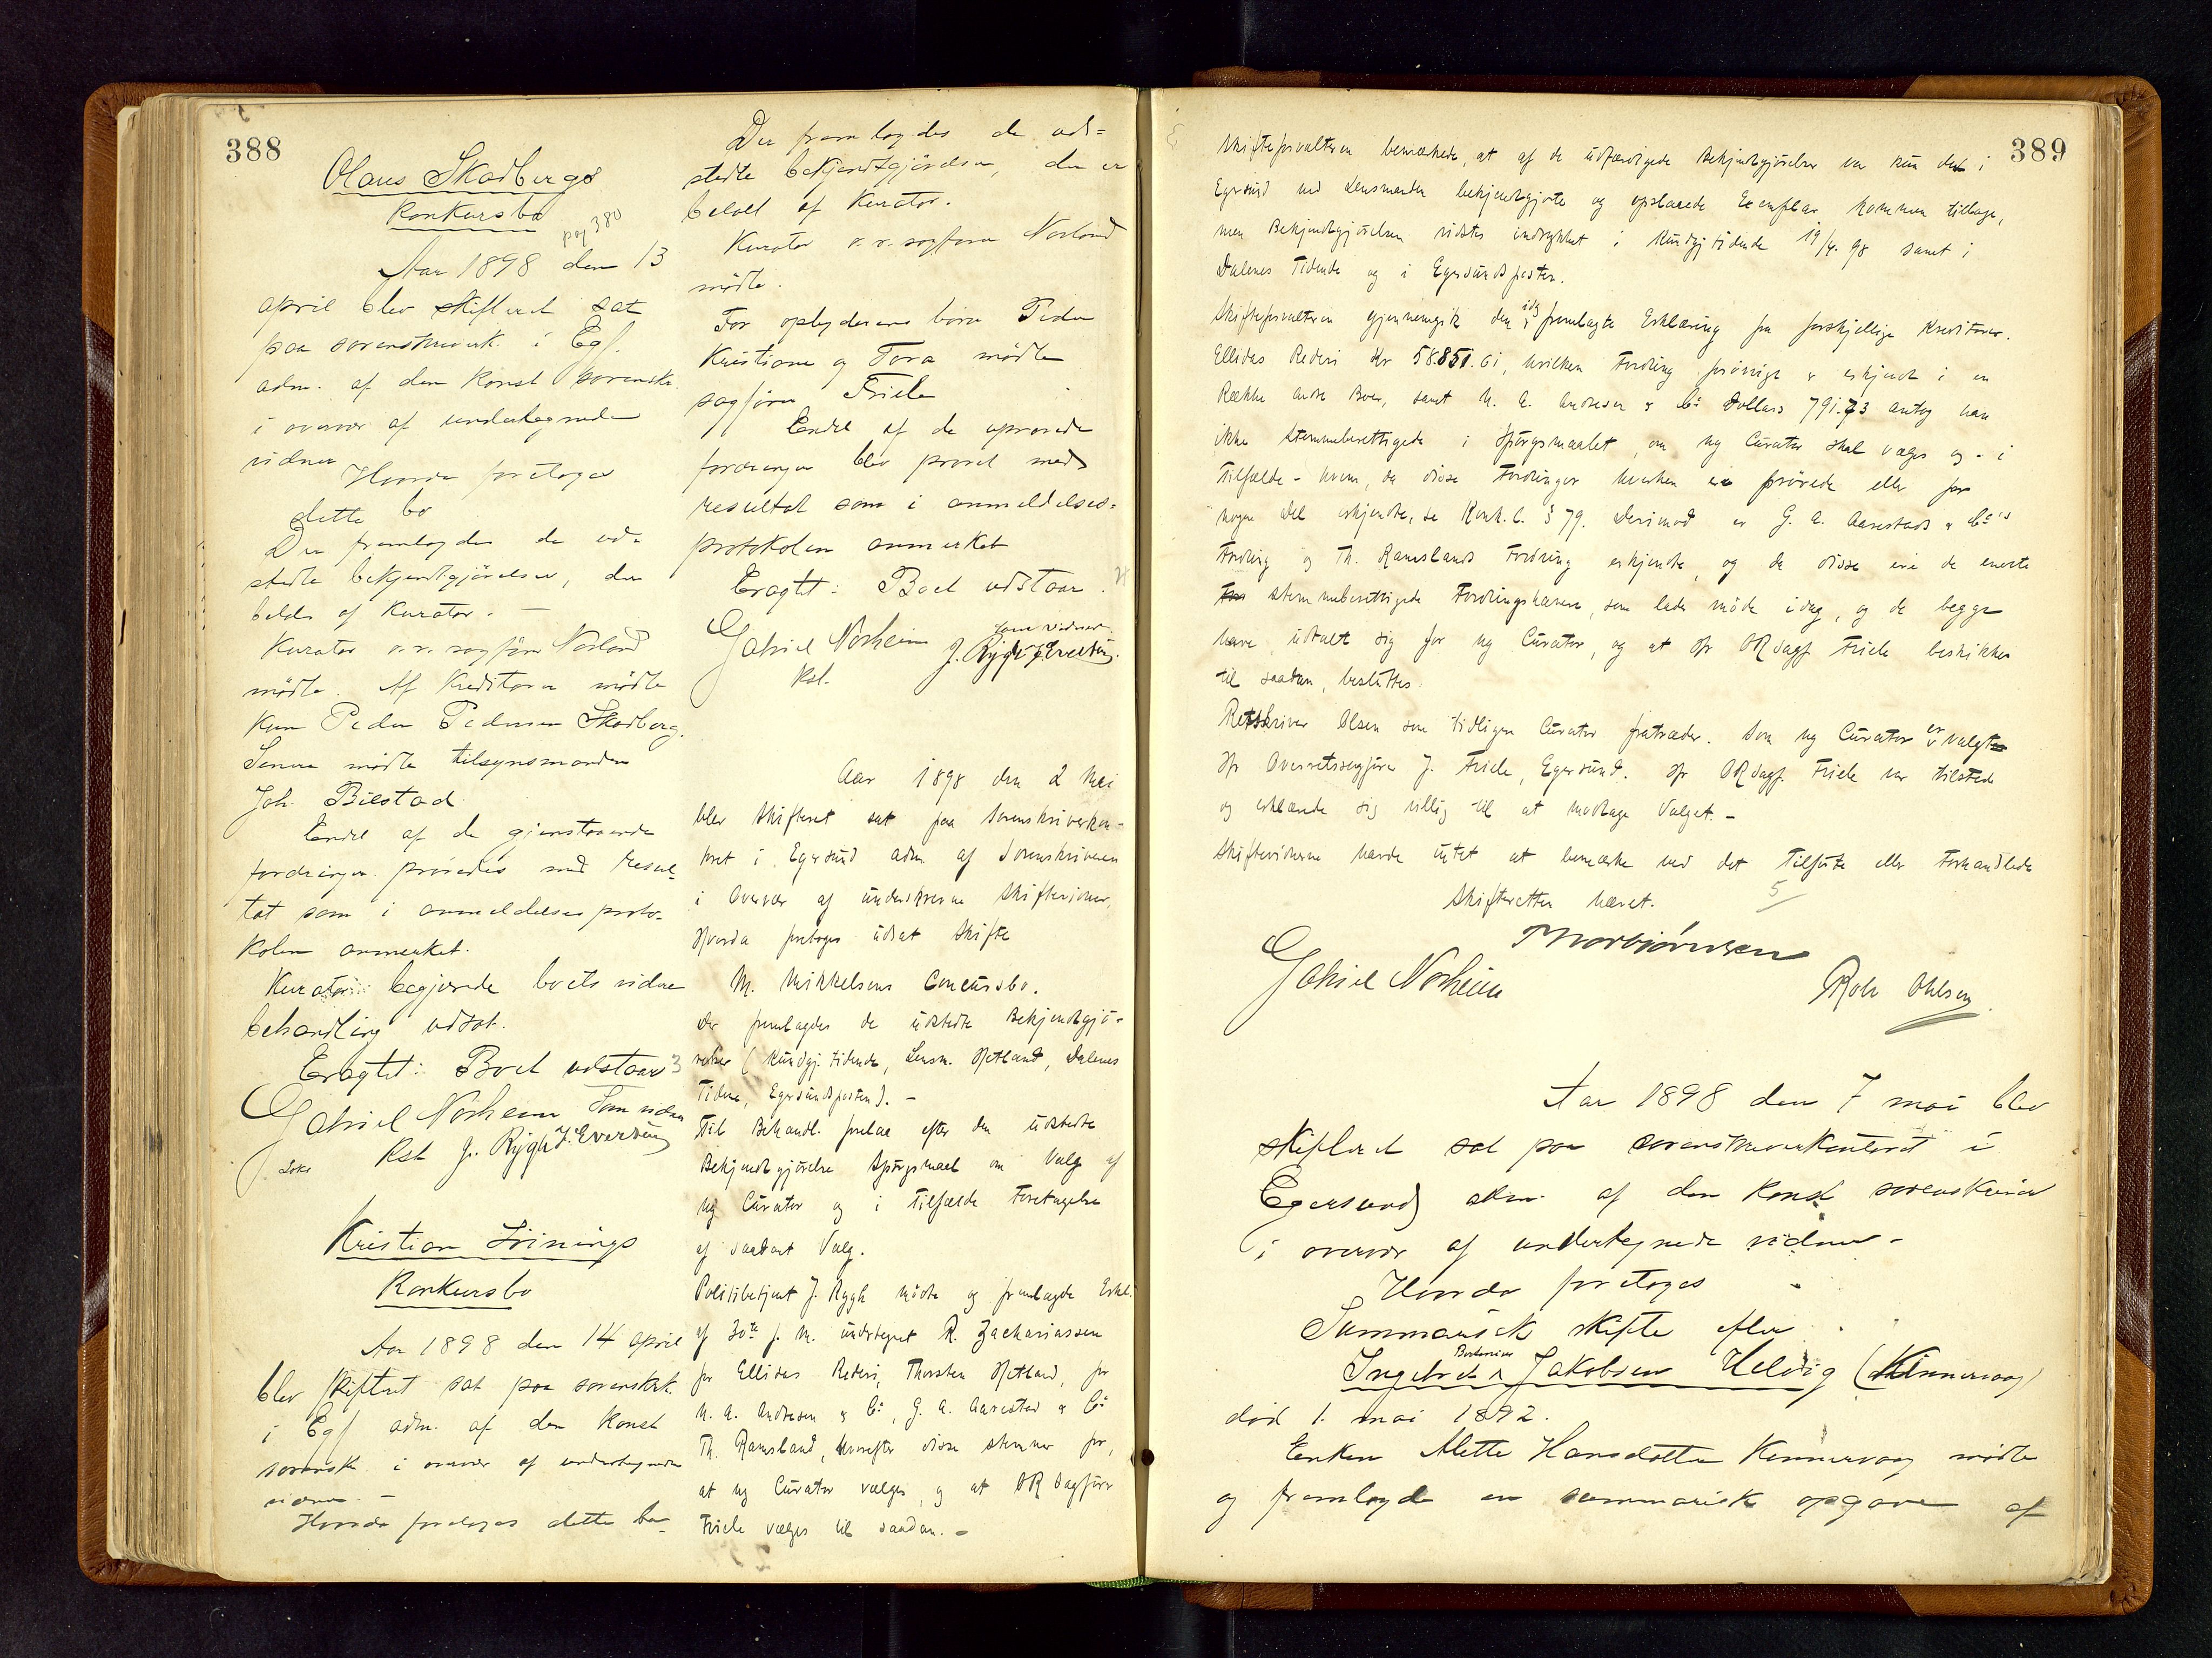 388
Olaus Skadbergs
Konkursbo
pag 380
Aar 1898 den 13
april blev skifteret sat
paa sorenskriverk. i Egs.
adm. af den konst. sorenskr.
i overvær af undertegnede
vidner
Hvorda foretoges
dette bo
Der fremlagdes de ud-
stedte bekjendtgjörelser, der
beldes af Kurator. —
Kurator o.r.sagförer Norland
mödte. Af Kreditorer mödte
kun Peder Pedersen Skadberg.
Senere mödte tilsynsmanden
Joh. Bilstad.
Endel af de gjenstaaende
fordringer prövedes med resul-
tat som i anmeldelsesproto-
kolen anmerket.
Kurator begjærede boets videre
behandling udsat.
Eragtet: Boet udstaar 3
Gabriel Norheim Som vidner
Kst J. Rygh J. Evertsen
Kristian Irinings
Konkursbo
Aar 1898 den 14 april
blev skifteret sat paa sorenskrk.
i Egs adm. af den konst
sorenskr i overvær af undertegnede
vidner. —
Hvorda foretoges dette bo
Der fremlagdes de ud-
stedte bekjendtgjörelser, der er
betalt af Kurator.
Kurator o.r.sagförer Norland
mödte.
For opbyderens börn Peder
Kristiane og Tora mödte
sagförer Friele
Endel af de uprövede
fordringer blev prövet med
resultat som i anmeldelses-
protokolen anmerket
Eragtet: Boet udstaar.
Som vidner
Gabriel Norheim J. Rygh J. Evertsen.
Kst.
Aar 1898 den 2 Mai
blev Skifteret sat paa Sorenskriverkon-
toret i Egersund adm af Sorenskriveren
i Overvær af underskrevne Skiftevidner,
Hvorda foretoges udsat Skifte
M. Mikkelsens Concursbo.
Der fremlagdes de udstedte Bekjendtgjö-
relser (Kundgj. tidende, Lensm. Hetland, Dalenes
Tidende, Egersundsposten). —
Til Behandl. forelaa efter den udstedte
Bekjendtgjörelse Spörgsmaal om Valg af
ny Curator og i Tilfælde Foretagelse
af saadant Valg.
Politibetjent J. Rygh mödte og fremlagde Erkl.
af 30te f. M. undertegnet R. Zachariassen
for Ellidas Rederi, Thorsten Hetland, for
N. A. Andresen & Co, G. A. Aarestad & Co
Th. Ramsland, hvorefter disse stemmer for,
at ny Curator vælges, og at OR Sagförer
Friele vælges til saadan. —
389
Skifteforvalteren bemærkede, at af de udfærdigede Bekjendtgjörelser var kun det i
Egersund ved Lensmanden bekjendtgjorte og opslaaede Exemplar kommen tilbage,
men Bekjendtgjörelsen vidstes indrykket i Kundgj tidende 19/4. 98 samt i
Dalenes Tidende og i Egersundsposten.
Skifteforvalteren gjennemgik den idag fremlagte Erklæring fra forskjellige Kreditorer.
Ellidas Rederi Kr 58.851.61, hvilken Fordring forövrigt er erkjendt i en
Række andre Boer, samt N. A. Andresen & Co Dollars 791.73 antog han
ikke Stemmeberettigede i Spörgsmaalet, om ny Curator skal vælges og – i
Tilfælde – hvem, da disse Fordringer hverken ere prövede eller for
nogen Del erkjendte, se Konk. L. § 79. Derimod er G. A. Aarestads & Co's
Fordring og Th. Ramslands Fordring erkjendte, og da disse ere de eneste
stemmeberettigede Fordringshavere, som lader möde idag, og de begge
have udtalt sig for ny Curator, og at Hr ORSagf Friele beskikkes
til saadan, besluttes:
Retskriver Olsen som tidligere Curator fratræder. Som ny Curator er valgt
Hr Overretssagförer J. Friele, Egersund. Hr ORSagf. Friele var tilstede
og erklærede sig villig til at modtage Valget. —
Skiftevidnerne havde intet at bemærke ved det Tilförte eller Forhandlede
Skifteretten hævet.
5/
Thorbjörnsen
Gabriel Norheim Rob Ohlsen.
Aar 1898 den 7 mai blev
skifteret sat paa sorenskriverkontoret i
Egersund adm. af den konst sorenskriver
i overvær af undertegnede vidner —
Hvorda foretoges
Summarisk skifte efter
Ingebret Jakobsen Helvig (Kinnervaag)
död 1. mai 1892.
Enken Mette Hansdatter Kinnervaag mödte
og fremlagde en summarisk opgave af